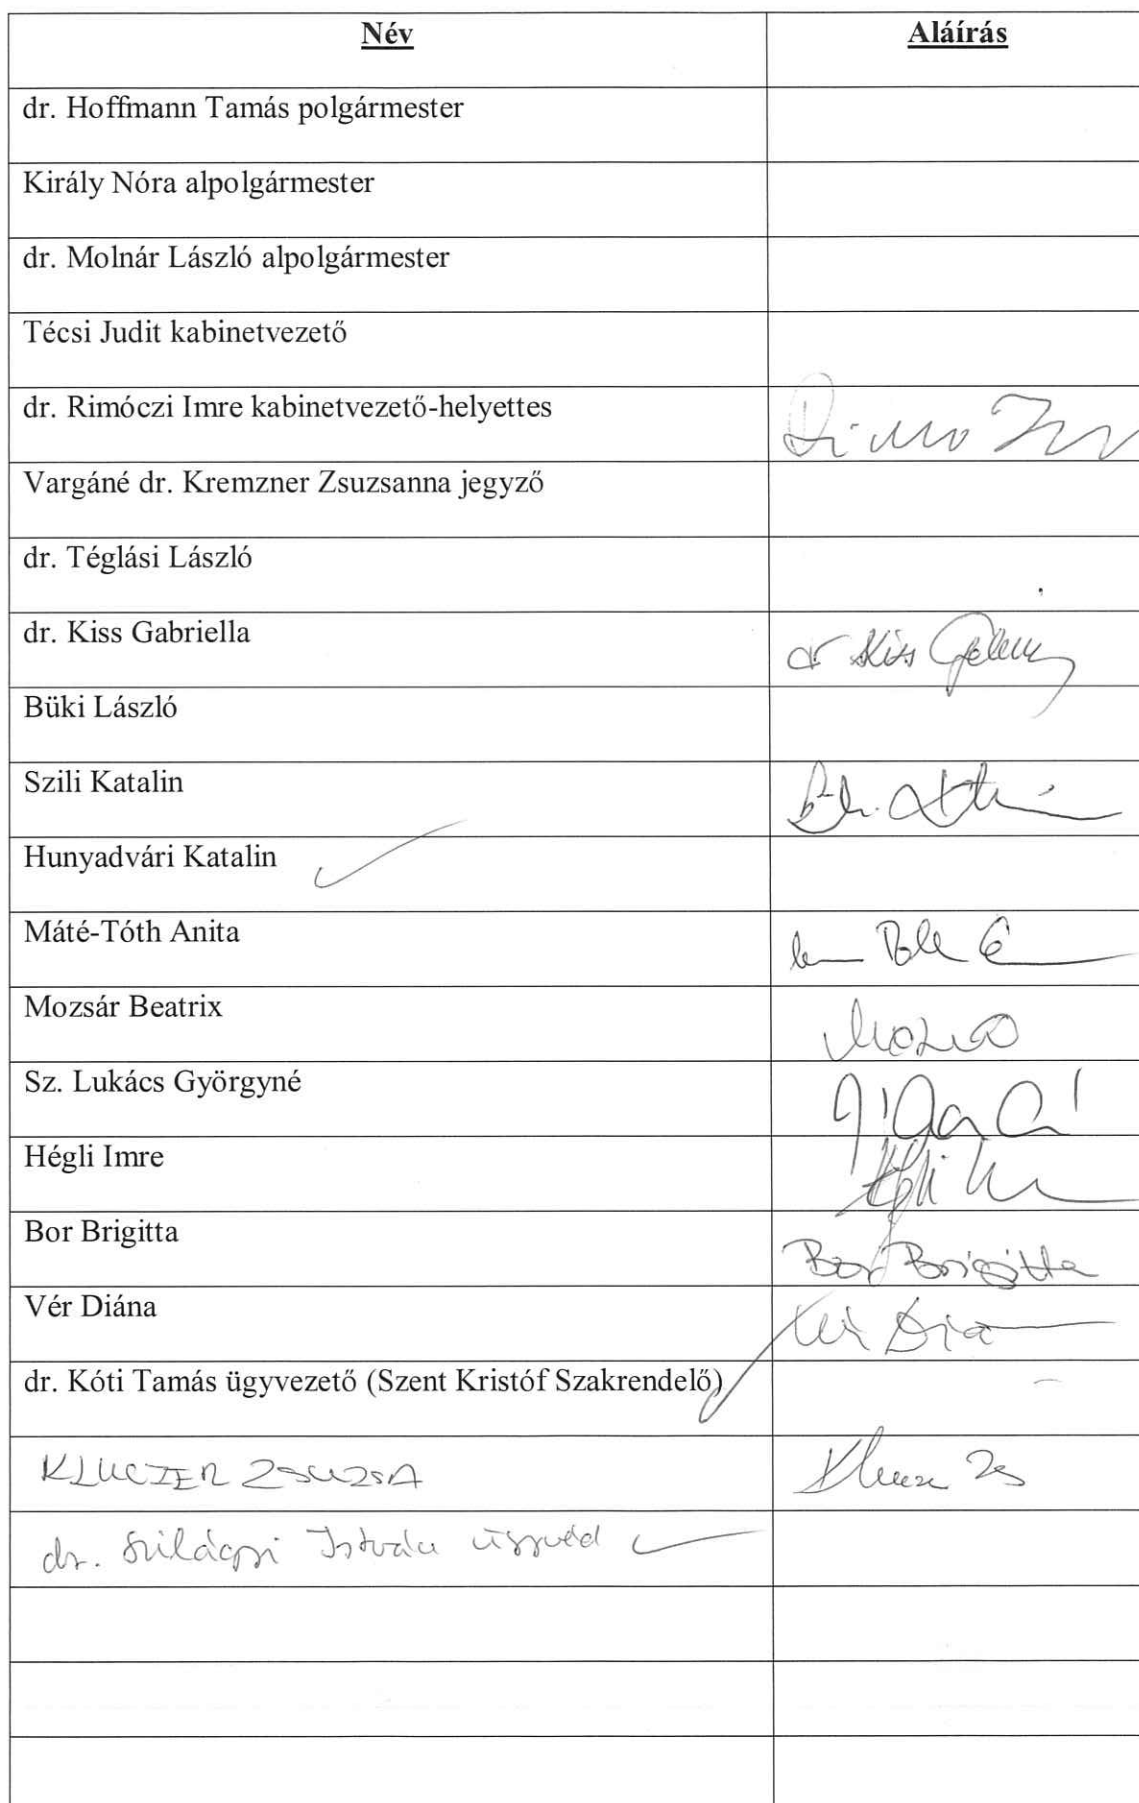 Név Aláírás
dr. Hoffmann Tamás polgármester
Király Nóra alpolgármester
dr. Molnár László alpolgármester
Técsi Judit kabinetvezető
dr. Rimóczi Imre kabinetvezető-helyettes
Vargáné dr. Kremzner Zsuzsanna jegyző
dr. Téglási László
dr. Kiss Gabriella dr Kiss
Büki László
Szili Katalin
Hunyadvári Katalin
Máté-Tóth Anita
Mozsár Beatrix
Sz. Lukács Györgyné
Hégli Imre
Bor Brigitta Bor Brigitta
Vér Diána
dr. Kóti Tamás ügyvezető (Szent Kristóf Szakrendelő)
KLUCZER ZSUZSA
dr. Szilágyi István ügyvéd